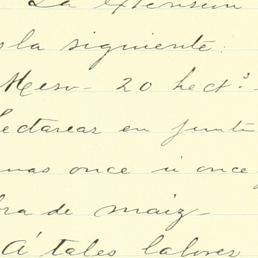 La extensión
es la siguiente:
Meso- 20 hect.s
hectareas en junti
unas once ú once y
bra de maiz-
A' tales labores